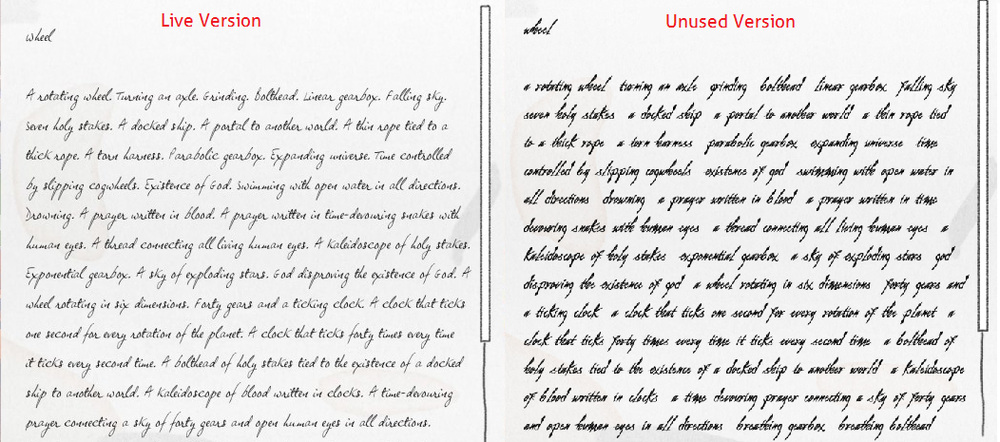 Live Version
wheel
A rotating wheel. Turning an axle. Grinding. Bolthead. Linear gearbox. Falling sky.
Seven holy stakes. A docked ship. A portal to another world. A thin rope tied to a
thick rope. A torn harness. Parabolic gearbox. Expanding universe. Time controlled
by slipping cogwheels. Existence of God. Swimming with open water in all directions.
Drowning. A prayer written in blood. A prayer written in time-devouring snakes with
human eyes. A thread connecting all living human eyes. A kaleidoscope of holy stakes.
Exponential gearbox. A sky of exploding stars. God disproving the existence of God. A
wheel rotating in six dimensions. Forty gears and a ticking clock. A clock that ticks
one second for every rotation of the planet. A clock that ticks forty times every time
it ticks every second time. A bolthead of holy stakes tied to the existence of a docked
ship to another world. A kaleidoscope of blood written in clocks. A time-devouring
prayer connecting a sky of forty gears and open human eyes in all directions.
Unused Version
wheel
a rotating wheel turning an axle grinding bolthead linear gearbox falling sky
seven holy stakes a docked ship a portal to another world a thin rope tied
to a thick rope a torn harness parabolic gearbox expanding universe time
controlled by slipping cogwheels existence of god swimming with open water in
all directions drowning a prayer written in blood a prayer written in time
devouring snakes with human eyes a thread connecting all living human eyes a
kaleidoscope of holy stakes exponential gearbox a sky of exploding stars god
disproving the existence of god a wheel rotating in six dimensions forty gears and
a ticking clock a clock that ticks one second for every rotation of the planet a
clock that ticks forty times every time it ticks every second time a bolthead of
holy stakes tied to the existence of a docked ship to another world a kaleidoscope
of blood written in clocks a time devouring prayer connecting a sky of forty gears
and open human eyes in all directions breathing gearbox breathing bolthead